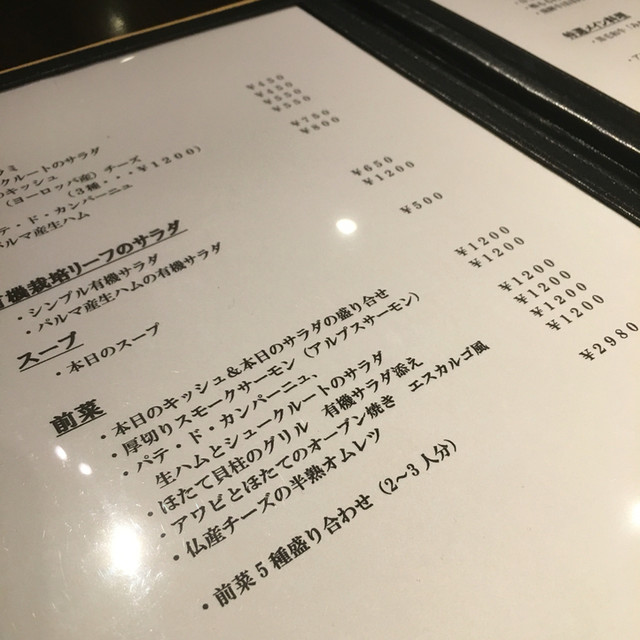 ¥450
¥450
¥550
¥750
¥800
ミ
クルートのサラダ
のキッシュ
（ヨーロッパ産）チーズ
（3種・・・¥1200）
テ・ド・カンパーニュ
パルマ産生ハム
機栽培リーフのサラダ
・シンプル有機サラダ ¥650
・パルマ産生ハムの有機サラダ ¥1200
スープ
・本日のスープ ¥500
前菜
・本日のキッシュ＆本日のサラダの盛り合せ ¥1200
・厚切りスモークサーモン（アルプスサーモン） ¥1200
・パテ・ド・カンパーニュ、
生ハムとシュークルートのサラダ ¥1200
・ほたて貝柱のグリル 有機サラダ添え ¥1200
・アワビとほたてのオーブン焼き エスカルゴ風 ¥1200
・仏産チーズの半熟オムレツ ¥1200
・前菜5種盛り合わせ（2〜3人分） ¥2980